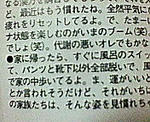 ど、最近はもう慣れたね。全然平気に
疲れをリセットしてるよ。で、たまに
ナ状態を楽しむのがいまのブーム
でしょ(笑)。代謝の悪いオレでもかな
●家に帰ったら、すぐに風呂のスイッ
て、パンツと靴下以外全部脱いで、風
で家の中歩いてるよ。ま、運がいいと
とか言われそうだけど、それがうちの
の家族たちは、そんな姿を見慣れちゃ